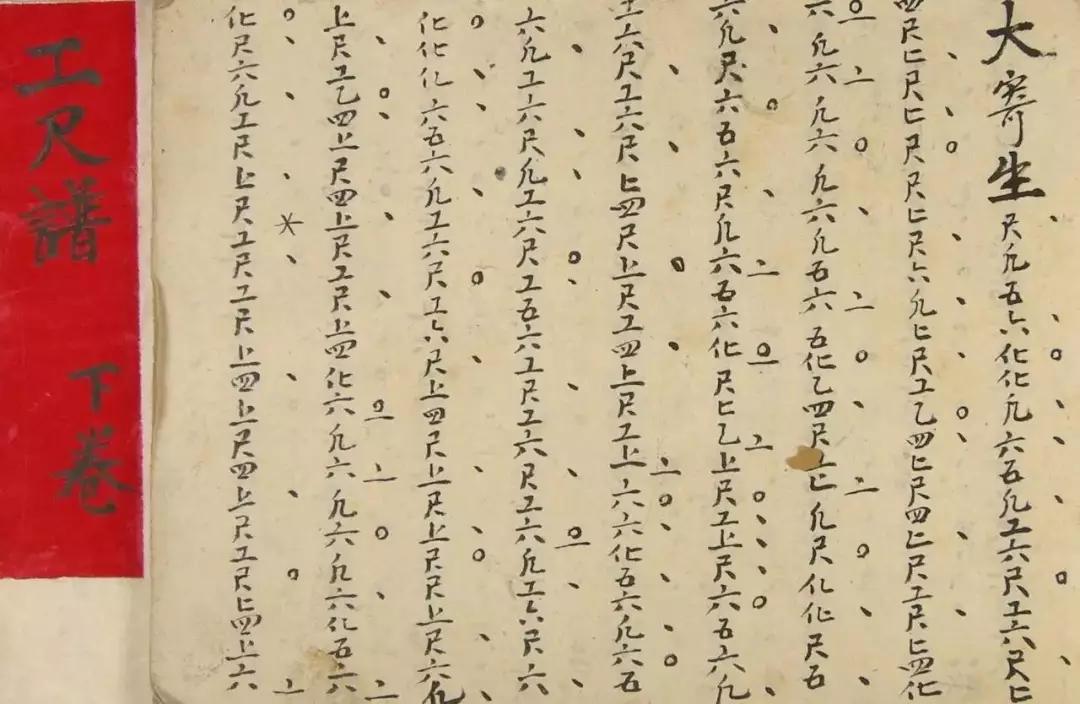 大寄生 尺凡五六化化凡六五凡工六尺工六尺上
四尺上尺上尺尺上尺六凡上尺工乙四上尺四上尺工尺上四化
六凡六凡六凡六凡五六五化乙四尺上上凡尺化化尺五
六凡尺六五六尺凡六五六化尺上乙上尺工上尺六五六凡
工六尺工六尺上四尺上尺工四上尺工上六六化五六凡六五
六凡工六尺凡工六尺工五六工尺工六尺工六凡工六尺六
化化化六五六凡工六尺工六尺上四尺上尺上尺尺上尺六凡
上尺工乙四上尺四上尺工尺上四化六凡六凡六凡六化五六
化尺六凡工尺上尺工尺工尺上四上尺四上尺工尺上四上六
工尺譜 下卷